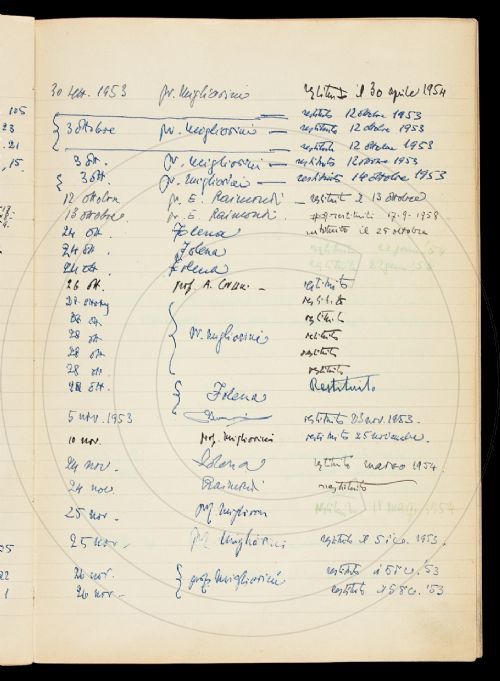 30 sett. 1953 pr. Migliorini restituito il 30 aprile 1954
105 restituito 12 ottobre 1953
23 3 ottobre pr. Migliorini restituito 12 ottobre 1953
21 restituito 12 ottobre 1953
15 3 ott. pr. Migliorini restituito 12 ottobre 1953
3 ott. pr. Migliorini restituito 14 ottobre 1953
12 ottobre pr. E. Raimondi restituito il 13 ottobre
13 ottobre pr. E. Raimondi restituiti 17-9-1958
24 ott. Folena restituito il 25 ottobre
24 ott. Folena restituito
24 ott. Folena restituito
26 ott. prof. A. restituito
28 ottobre restituito
28 ott. restituito
28 ott. pr. Migliorini restituito
28 ott. restituito
28 ott. restituito
28 ott. Folena Restituito
5 nov. 1953 restituito 23 nov. 1953.
10 nov. prof. Migliorini restituito 25 novembre.
24 nov. Folena restituito marzo 1954
24 nov. Raimondi restituito
25 nov. prof. Migliorini restituito 11 marzo 1954
25 nov. prof. Migliorini restituito il 5 dic. 1953.
05
22 26 nov. prof. Migliorini restituito il 5 dic. '53
1 26 nov. restituito il 5 dic. '53